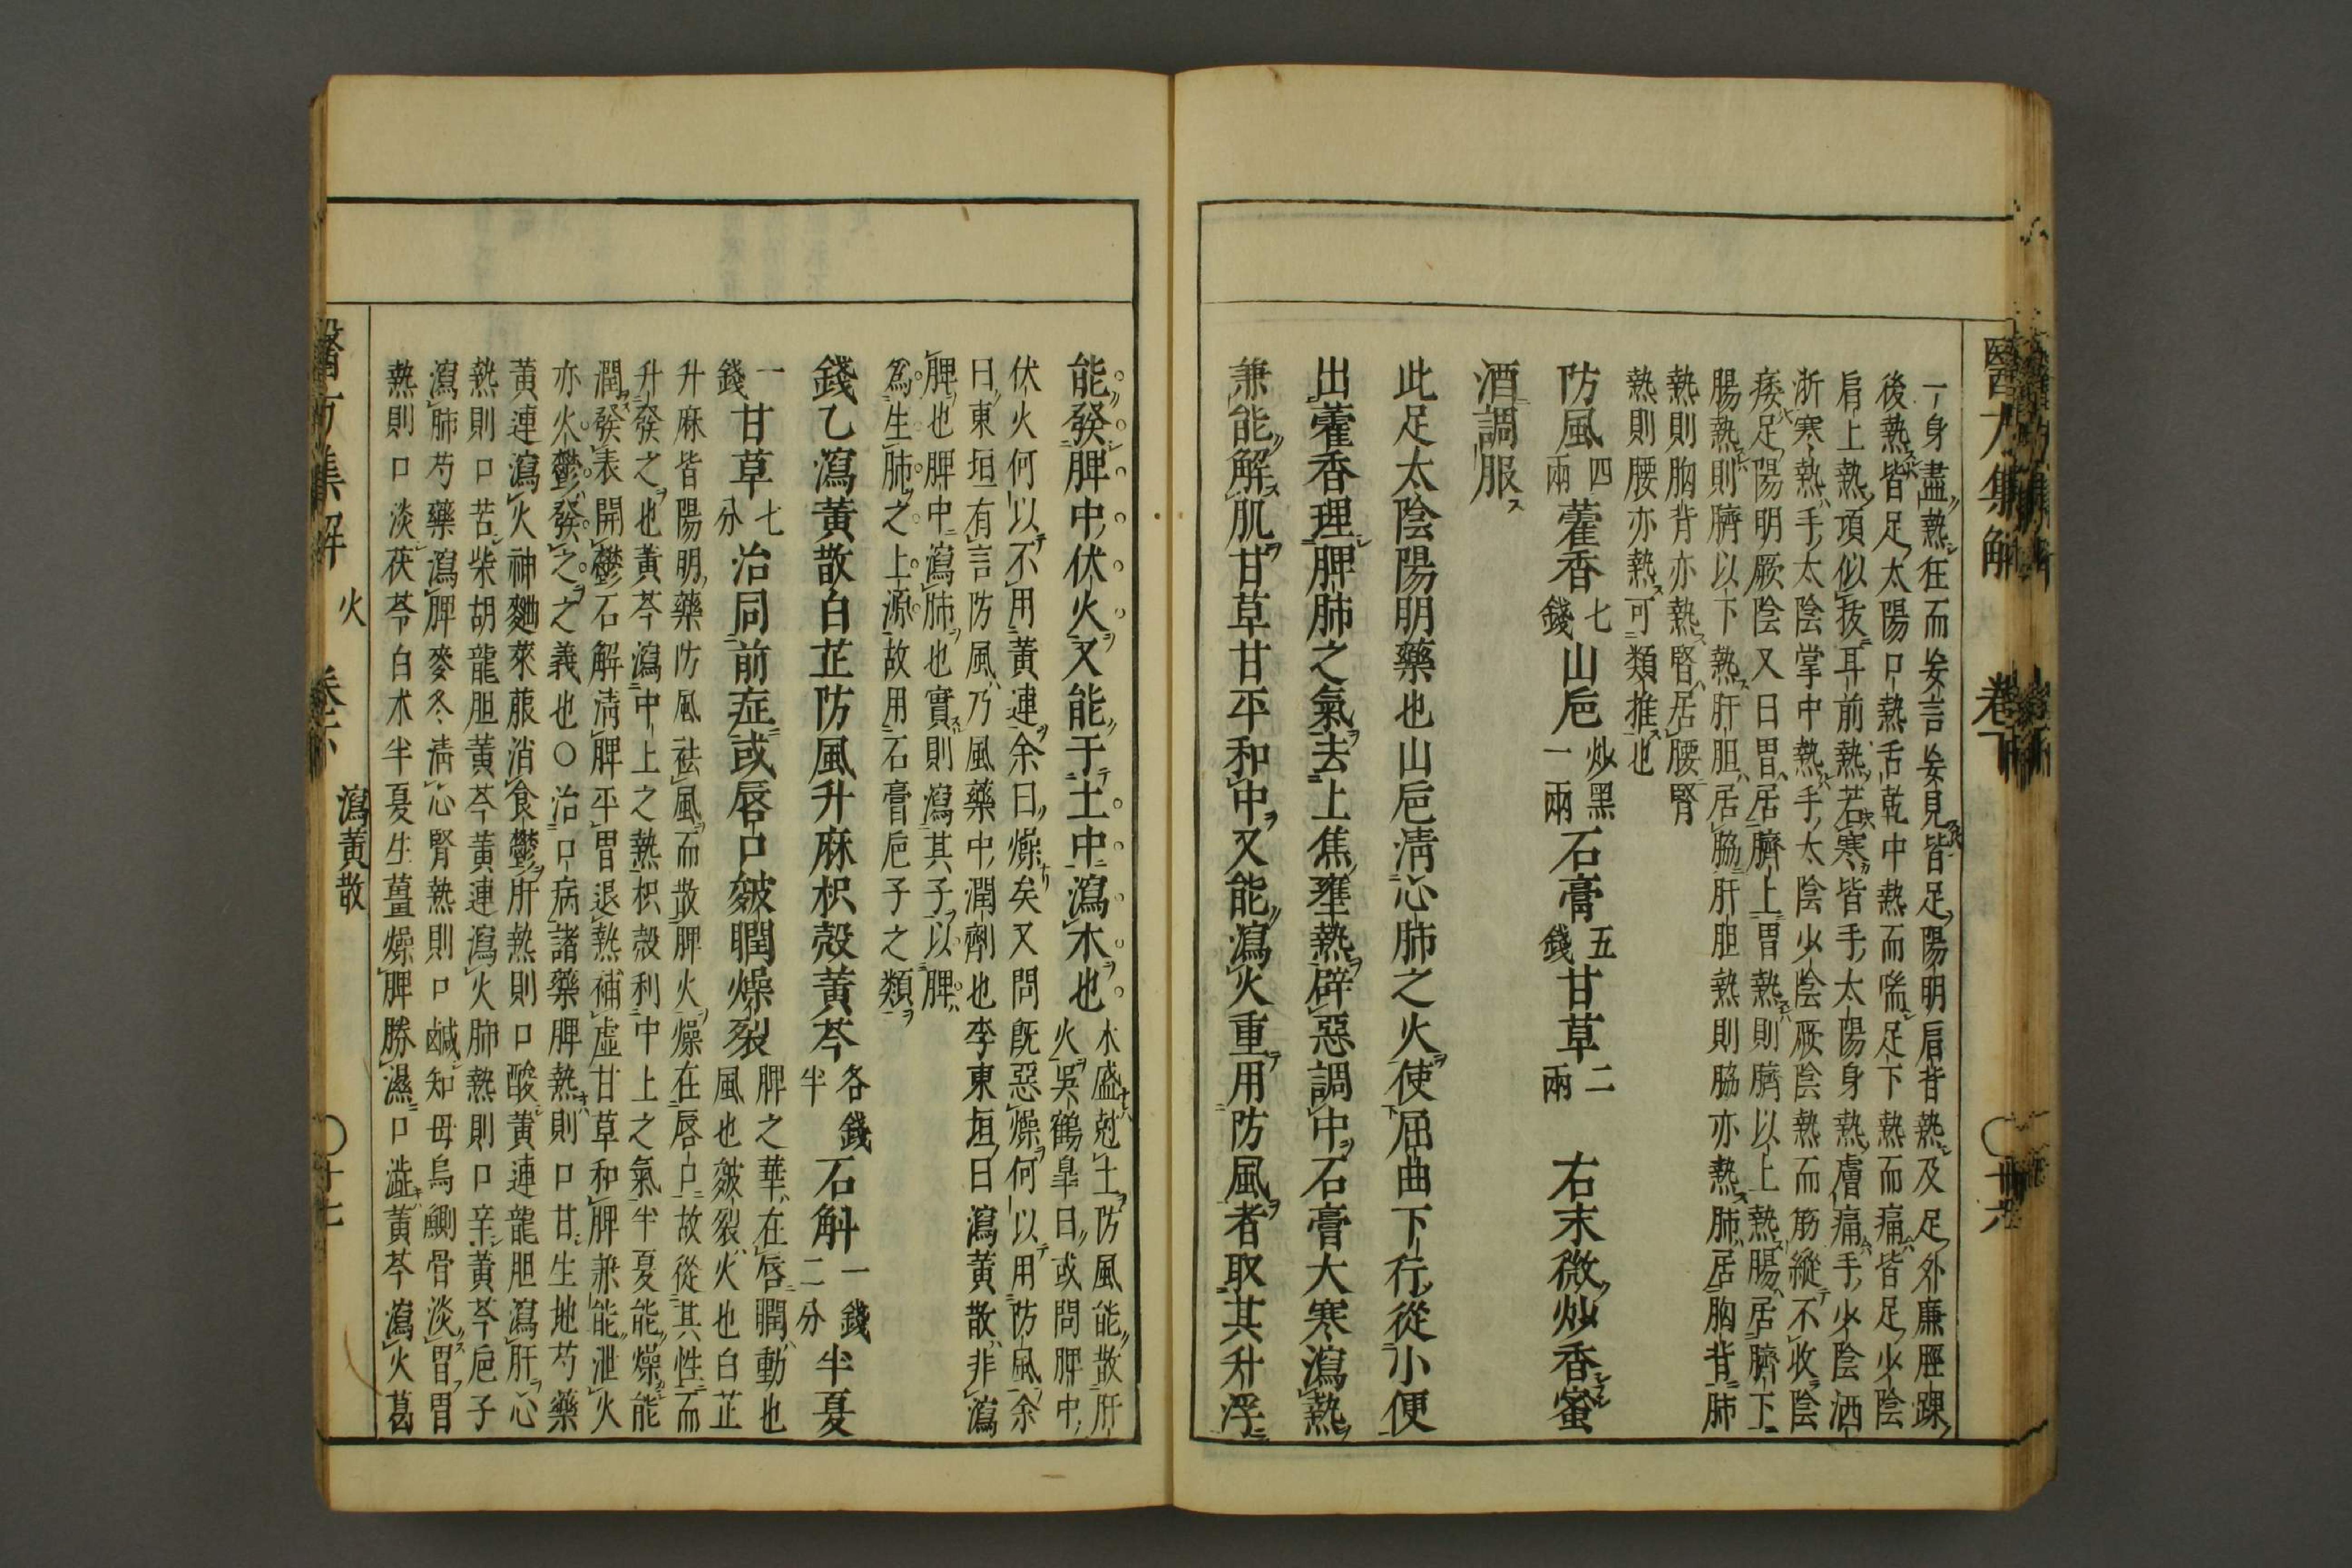 醫方集解
卷下
一身盡熱狂而妄言妄見皆足陽明肩背熱及足外廉脛踝
後熱皆足太陽口熱舌乾中熱而喘足下熱而痛皆足少陰
肩上熱項似拔耳前熱若寒皆手太陽身熱膚痛手少陰洒
淅寒熱手太陰掌中熱手太陰少陰厥陰熱而筋縱不收陰
痿足陽明厥陰又曰胃居臍上胃熱則臍以上熱腸居臍下
腸熱則臍以下熱肝胆居脇肝胆熱則脇亦熱肺居胸背肺
熱則胸背亦熱腎居腰腎
熱則腰亦熱可類推也
防風四兩藿香七錢山巵炒黑一兩石膏五錢甘草二兩 右末微炒香蜜
酒調服
此足太陰陽明藥也山巵清心肺之火使屈曲下行從小便
出藿香理脾肺之氣去上焦壅熱辟惡調中石膏大寒瀉熱
兼能解肌甘草甘平和中又能瀉火重用防風者取其升浮
能發脾中伏火又能于土中瀉木也木盛尅土防風能散肝
火吳鶴皐曰或問脾中
伏火何以不用黃連余曰燥矣又問旣惡燥何以用防風余
曰東垣有言防風乃風藥中潤劑也李東垣曰瀉黃散非瀉
脾也脾中瀉肺也實則瀉其子以脾
為生肺之上源故用石膏巵子之類
錢乙瀉黃散白芷防風升麻枳殼黃芩各錢半石斛一錢二分半夏
一錢甘草七分治同前症或唇口皴瞤燥裂脾之華在唇瞤動也
風也皴裂火也白芷
升麻皆陽明藥防風祛風而散脾火燥在唇口故從其性而
升發之也黃芩瀉中上之熱枳殼利中上之氣半夏能燥能
潤發表開鬱石解清脾平胃退熱補虛甘草和脾兼能泄火
亦火鬱發之之義也○治口病諸藥脾熱則口甘生地芍藥
黃連瀉火神麯萊菔消食鬱肝熱則口酸黃連龍胆瀉肝心
熱則口苦柴胡龍胆黃芩黃連瀉火肺熱則口辛黃芩巵子
瀉肺芍藥瀉脾麥冬清心腎熱則口鹹知母烏鰂骨淡胃胃
熱則口淡茯苓白朮半夏生薑燥脾勝濕口澁黃芩瀉火葛
醫方集解
火
瀉黃散
十七